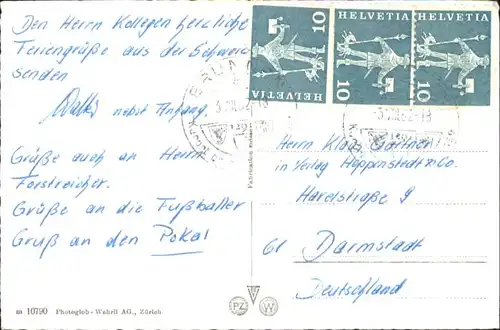 Den Herrn Kollegen herzliche
Feriengrüße aus der Schweiz
senden
nebst Anhang.
Grüße auch an Herrn
Forstreicher.
Grüße an die Fußballer
Gruß an den Pokal
HELVETIA
10
HELVETIA
10
HELVETIA
10
Herrn Klaus Gärtner
in Verlag Hoppenstedt & Co.
Havelstraße 9
61 Darmstadt
Deutschland
m 10790 Photoglob-Wehrli AG., Zürich
PZ
W